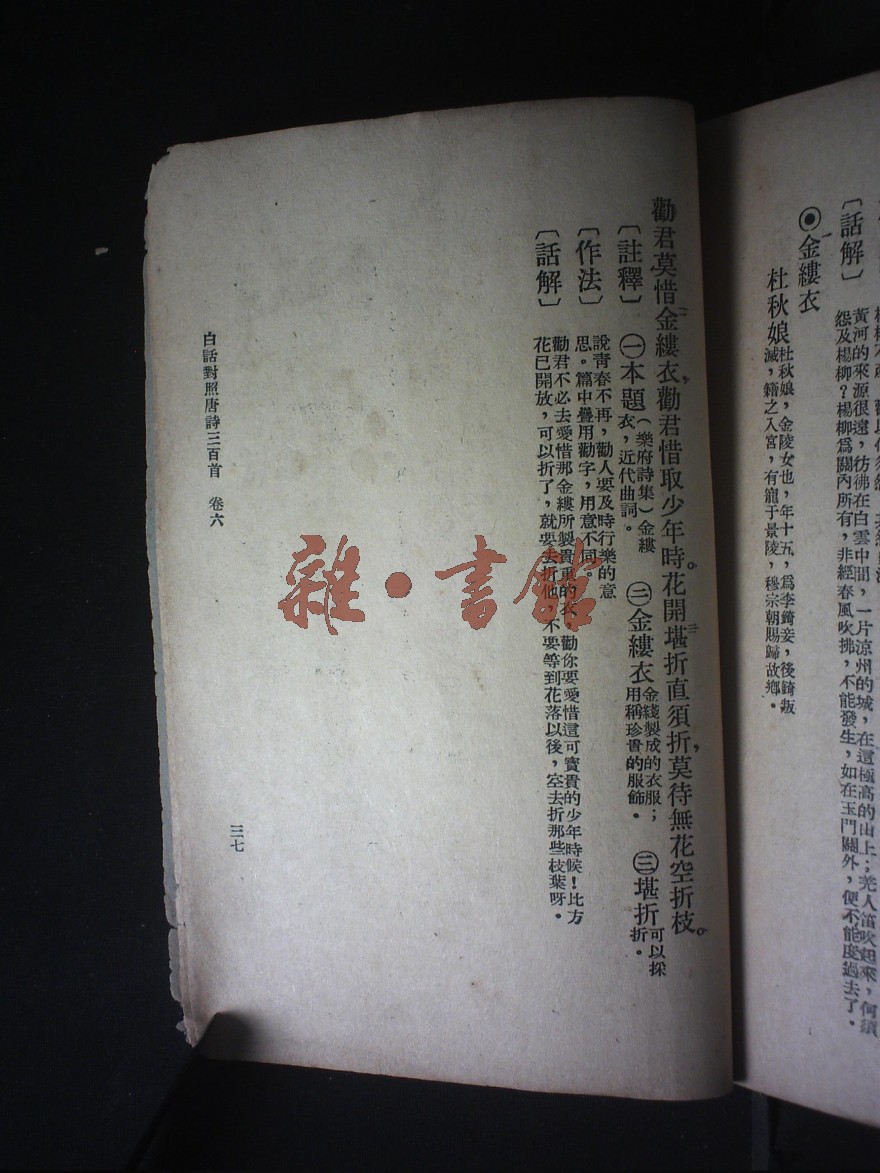 〔話解〕
黃河的來源很遠，彷彿在白雲中間，一片涼州的城，在這極高的山上；羌人笛吹起來，何須
怨及楊柳？楊柳爲關內所有，非經春風吹拂，不能發生，如在玉門關外，便不能度過去了。
◉金縷衣
杜秋娘
杜秋娘，金陵女也，年十五，爲李錡妾，後錡叛
滅，籍之入宮，有寵于景陵，穆宗朝賜歸故鄉。
勸君莫惜金縷衣，勸君惜取少年時。花開堪折直須折，莫待無花空折枝。
〔註釋〕㊀本題（樂府詩集）金縷衣，近代曲詞。㊁金縷衣金綫製成的衣服；用稱珍貴的服飾。㊂堪折可以採折。
〔作法〕說靑春不再，勸人要及時行樂的意
思。篇中疊用勸字，用意不同。
〔話解〕勸君不必去愛惜那金縷所製貴重的衣，勸你要愛惜這可寶貴的少年時候！比方
花已開放，可以折了，就要去折他，不要等到花落以後，空去折那些枝葉呀。
白話對照唐詩三百首　卷六
三七
雜・書館